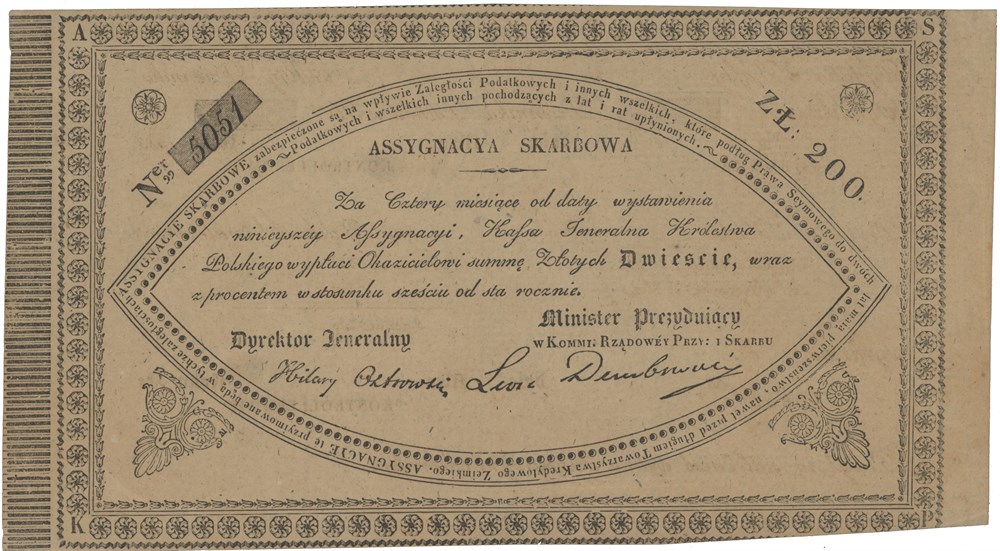 A S
N<sup>er</sup> 5051
ZŁ: 200.
ASSYGNACYIE SKARBOWE zabezpieczone są na wpływie Zaległości Podatkowych i innych wszelkich, które podług Prawa Seymowego do dwóch lat maią pierwszeństwo, nawet przed długiem Towarzystwa Kredytowego Ziemskiego. ASSYGNACYIE te przyimowane będą w tychże zaległościach
Podatkowych i wszelkich innych pochodzących z lat i rat upłynionych.
ASSYGNACYA SKARBOWA
Za Cztery miesiące od daty wystawienia
ninieyszéy Assygnacyi, Kassa Jeneralna Królestwa
Polskiego wypłaci Okazicielowi summę Złotych Dwieście, wraz
z procentem w stosunku sześciu od sta rocznie.
Dyrektor Jeneralny
Minister Prezyduiący
w KOMMI: RZĄDOWÉY PRZY: i SKARBU
Hilary Ostrowski
Leon Dembowski
K P